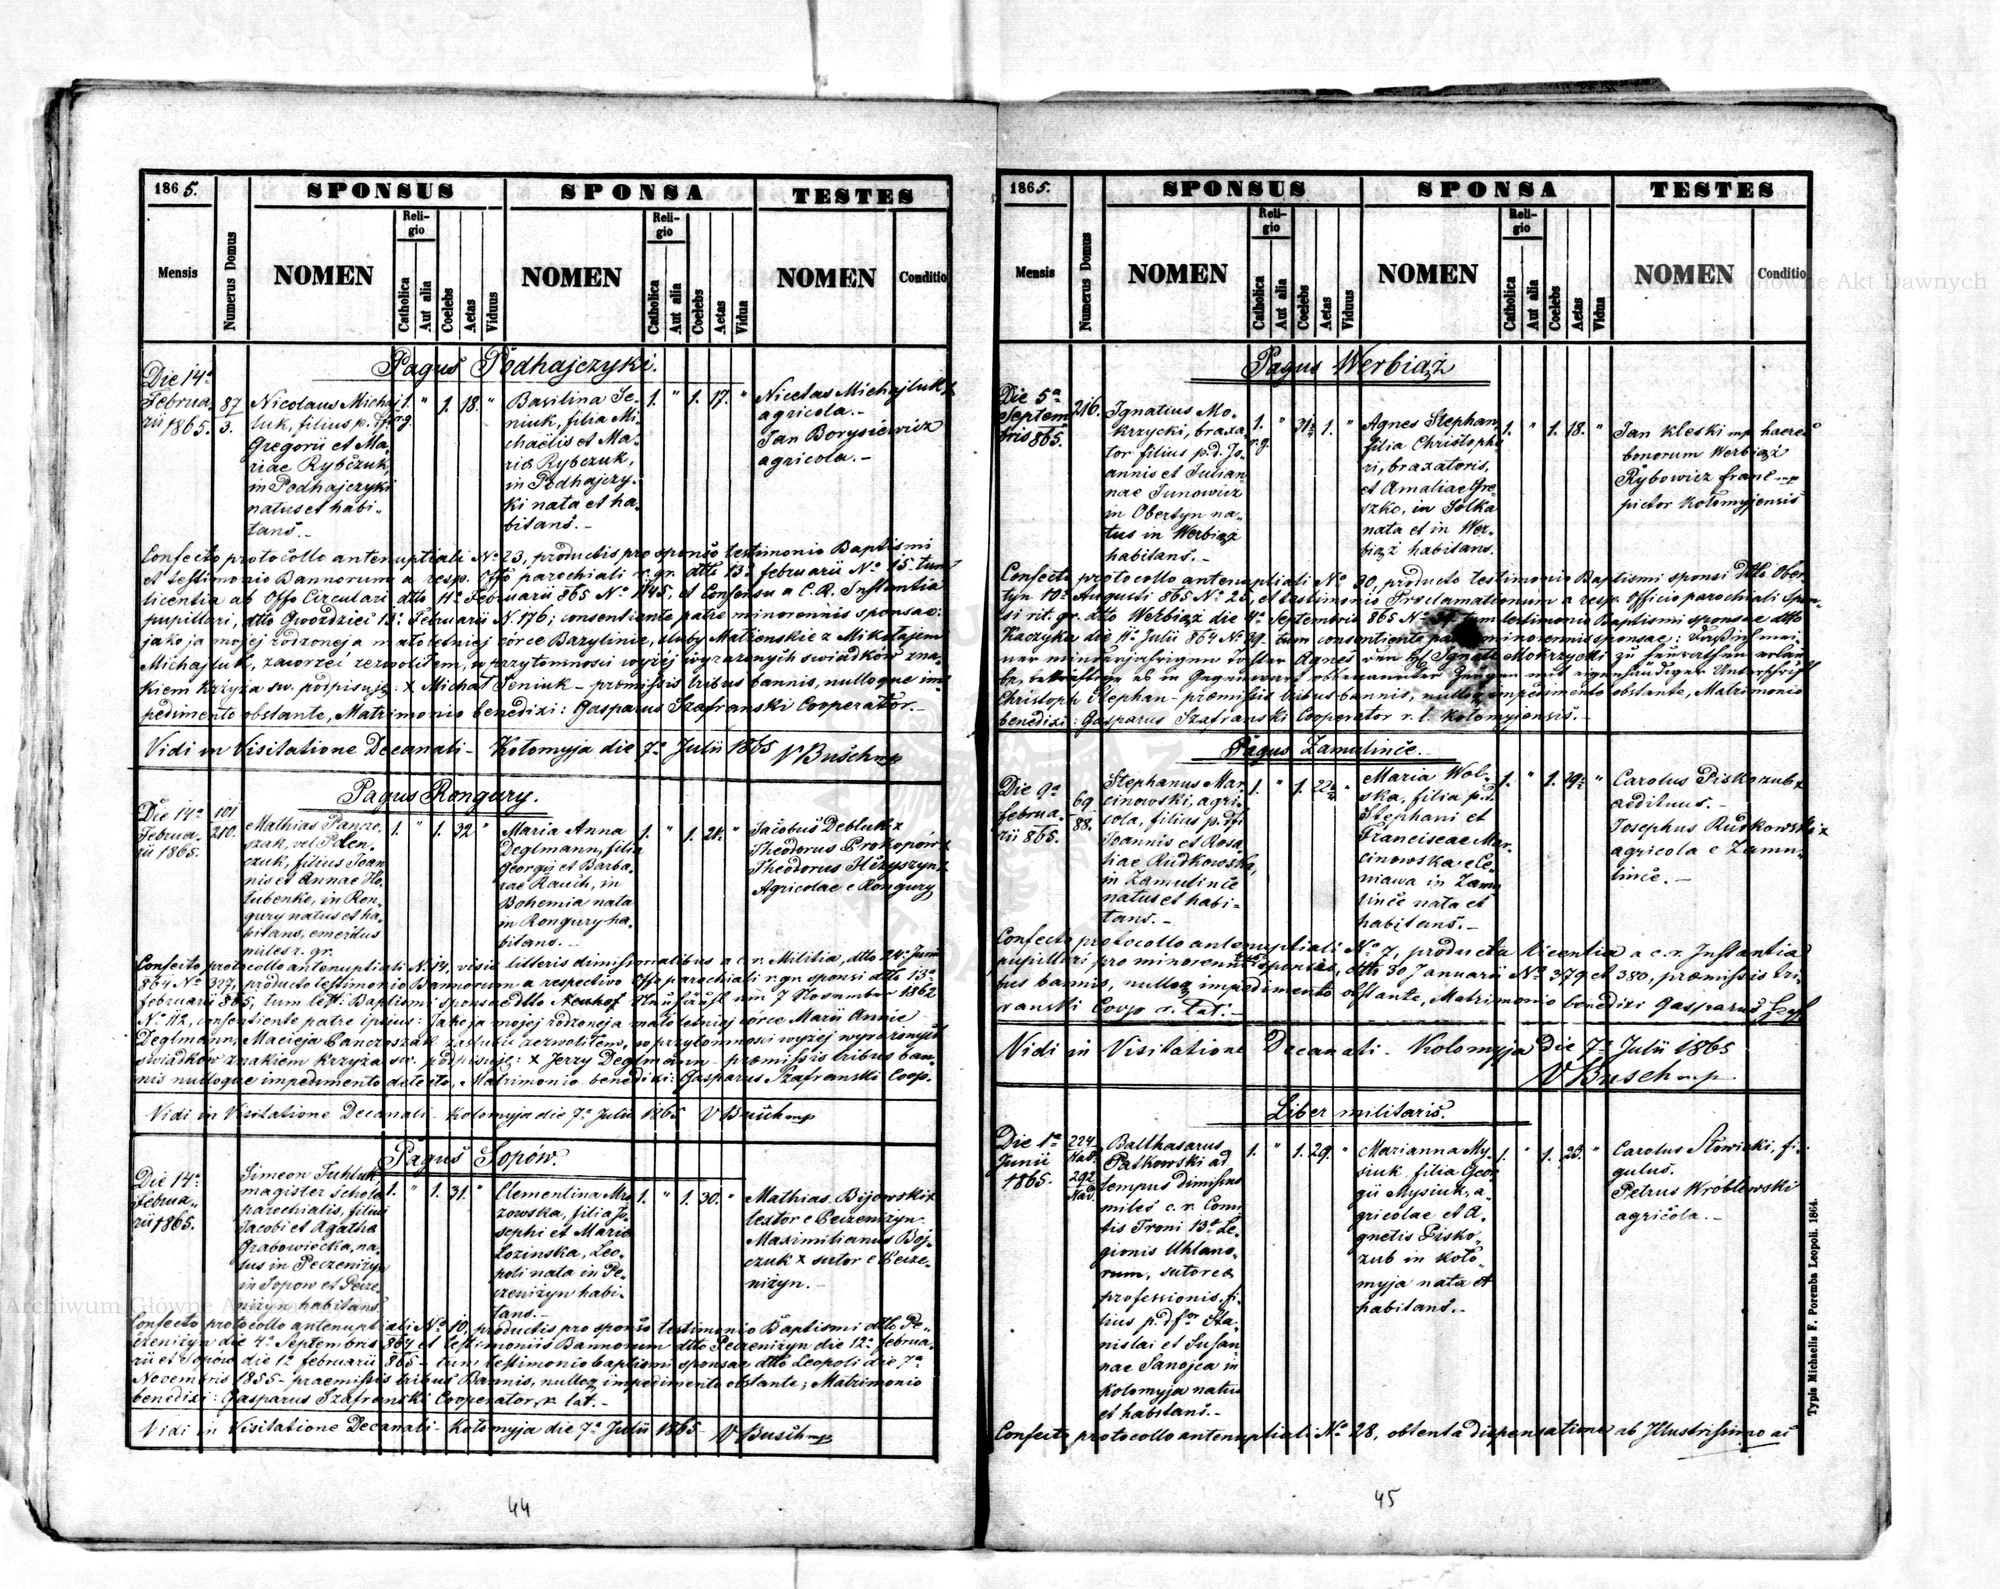 1865.
SPONSUS
SPONSA
TESTES
Mensis
Numerus Domus
NOMEN
Religio
Catholica
Aut alia
Coelebs
Aetas
Viduus
NOMEN
Religio
Catholica
Aut alia
Coelebs
Aetas
Vidua
NOMEN
Conditio
Pagus Podhajczyki.
Die 14a
Februa-
rii 1865.
87
3.
Nicolaus Michaj-
luk, filius p. df.
Gregorii et Ma-
riae Rybczuk,
in Podhajczyki
natus et habi-
tans.-
1. " 1. 18. "
r.g.
Basilina Se-
niuk, filia Mi-
chaelis et Ma-
ria Rybczuk,
in Podhajczy-
ki nata et ha-
bitans.-
1. " 1. 17. "
Nicetas Michajluk x
agricola.-
Jan Borysiewicz
agricola.-
Confecto protocollo antenuptiali No 23, productis pro sponso testimonio Baptismi
et testimonio Bannorum a resp. Offo parochiali r. gr. dtto 13a februarii No 15. tum
licentia ab Offo Circulari dtto 11a Februarii 865 No 1145, et Consensu a C. R. Instantia
pupillari, dtto Gwoździec 13a Februarii N. 176; consentiente patre minorennis sponsae:
jako ja mojej rodzonej a małoletniej córce Bazylinie, śluby Małżenskie z Mikołajem
Michajluk, zawrzeć zezwoliłem, w przytomności wyżej wyrażonych świadków zna-
kiem krzyża sw. podpisuję: x Michał Seniuk - praemissis tribus bannis, nulloque im-
pedimento obstante, Matrimonio benedixi: Gasparus Szafranski Cooperator.-
Vidi in Visitatione Decanali - Kołomyja die 7a Julii 1865 V Busch mp
Pagus Rongury.
Die 14a
Februa-
rii 1865.
101
210.
Mathias Pancze-
szak, vel Pden-
czuk, filius Joan-
nis et Annae Ho-
lubenko, in Ron-
gury natus et ha-
bitans, emeritus
miles r. gr.
1. " 1. 32 "
Maria Anna
Deglmann, filia
Georgii et Barba-
rae Rauch, in
Bohemia nata
in Rongury ha-
bitans.-
1. " 1. 24. "
Jacobus Debluk x
Theodorus Prokopów x
Theodorus Hryszyn x
Agricolae e Rongury
Confecto protocollo antenuptiali N. 14, visis litteris dimissionalibus a c. r. Militia, dtto 24a Junii
864 No 327, producto testimonio Bannorum a respectivo Offo parochiali r. gr. sponsi dtto 13a
februarii 865, tum test: Baptismi sponsae dtto Neuhof 7 November 1862
No 112, consentiente patre ipsius: Jako ja mojej rodzonej a małoletniej córce Marii Annie
Deglmann, Macieja Panczoszak zaślubić zezwoliłem, w przytomności wyżej wyrażonych
świadków znakiem krzyża sw. podpisuję: x Jerzy Deglmann - praemissis tribus ban-
nis nulloque impedimento detecto, Matrimonio benedixi: Gasparus Szafranski Coop.
Vidi in Visitatione Decanali - Kołomyja die 7a Julii 1865 V Busch mp
Pagus Sopów.
Die 14a
februa-
rii 1865.
Simeon Tuhluk,
magister schola
parochialis, filius
Jacobi et Agatha
Grabowiecka, na-
tus in Peczeniżyn
in Sopow et Pecze-
niżyn habitans.
1. " 1. 31. "
Clementina Mro-
zowska, filia Jo-
sephi et Maria
Lozinska, Leo-
poli nata in Pe-
czeniżyn habi-
tans.-
1. " 1. 30. "
Mathias Bijowski x
textor e Peczeniżyn
Maximilianus Boj-
czuk x sutor e Pecze-
niżyn.-
Confecto protocollo antenuptiali No 10, productis pro sponso testimonio Baptismi dtto Pe-
czeniżyn die 4a Septembris 864 et testimoniis Bannorum dtto Peczeniżyn die 12a februa-
rii et Sopów die 12 februarii 865 - tum testimonio baptismi sponsae dtto Leopoli die 7a
Novembris 1855 - praemissis tribus Bannis, nulloq impedimento obstante; Matrimonio
benedixi: Gasparus Szafranski Cooperator, r. lat.-
Vidi in Visitatione Decanali - Kołomyja die 7a Julii 1865 - V Busch mp
44
1865.
SPONSUS
SPONSA
TESTES
Mensis
Numerus Domus
NOMEN
Religio
Catholica
Aut alia
Coelebs
Aetas
Viduus
NOMEN
Religio
Catholica
Aut alia
Coelebs
Aetas
Vidua
NOMEN
Conditio
Pagus Werbiąż
Die 5a
Septem-
bris 865.
216.
Ignatius Mo-
krzycki, braxa-
tor filius p. d. Jo-
annis et Julian-
nae Junowicz
in Obertyn na-
tus in Werbiąż
habitans.-
1. " 31 1. "
r.g.
Agnes Stephan
filia Christopho-
ri, braxatoris,
et Amaliae Gre-
szko, in Solka
nata et in Wer-
biąż habitans.
1. " 1. 18. "
Jan Kleski mp haeres
bonorum Werbiąż
Rybowicz franc mp
pictor Kołomyjensis
Confecto protocollo antenuptiali No 30, producto testimonio Baptismi sponsi dtto Ober-
tyn 10a Augusti 865 No 23, et testimonio Proclamationum a resp. Officio parochiali spon-
si rit. gr. dtto Werbiąż die 4a Septembris 865 No 37 tum testimonio Baptismi sponsae dtto
Kaczyka die 11a Julii 864 No 39. tum consentiente patre minorennis sponsae:
ner minderjährigen Tochter Agnes den Ignatz Mokrzycki zu heurathen erlau-
be, bekräftige ich in Gegenwart obbenannter Zeugen mit eigenhändiger Unterschrift
Christoph Stephan - praemissis tribus bannis, nulloq impedimento obstante, Matrimonio
benedixi: Gasparus Szafranski Cooperator r. l. Kołomyjensis.-
Pagus Zamulińce.
Die 9a
februa-
rii 865.
69
88.
Stephanus Mar-
cinowski, agri-
cola, filius p. df.
Joannis et Rosa-
liae Rudkowska,
in Zamulińce
natus et habi-
tans.-
1. " 1. 22 "
Maria Wol-
ska, filia p. d.
Stephani et
Franciscae Mar-
cinowska e Ce-
niawa in Zamu-
lińce nata et
habitans.-
1. " 1. 19 "
Carolus Piskozub x
aedituus.-
Josephus Rudkowski x
agricola e Zamu-
lińce.-
Confecto protocollo antenuptiali No 7, producta licentia a c. r. Instantia
pupillari pro minorennibus sponsis, dtto 30 Januarii No 379 et 380, praemissis tri-
bus bannis, nulloq impedimento obstante, Matrimonio benedixi Gasparus Szaf-
ranski Coop r. Lat.-
Vidi in Visitatione Decanali - Kołomyja die 7a Julii 1865
V Busch mp
Liber militaris.
Die 1a
Junii
1865.
224
Nab.
292
Nad.
Balthasarus
Patkowski ad
tempus dimissus
miles c. r. Comi-
tis Trani 13a Le-
gionis Uhlano-
rum, sutor e
professionis, fi-
lius p. d. for Sta-
nislai et Susan-
nae Sanojca in
Kołomyja natus
et habitans.-
1. " 1. 29. "
Marianna My-
siuk filia Geor-
gii Mysiuk, a-
gricolae et A-
gnetis Pisko-
zub in Koło-
myja nata et
habitans.-
1. " 1. 23. "
Carolus Słowicki, fi-
gulus.
Petrus Wróblewski
agricola.-
Confecto protocollo antenuptiali No 28, obtenta dispensatione ab Illustrissimo ac
Typis Michaelis F. Poremba Leopoli. 1864.
45
Archiwum Główne Akt Dawnych